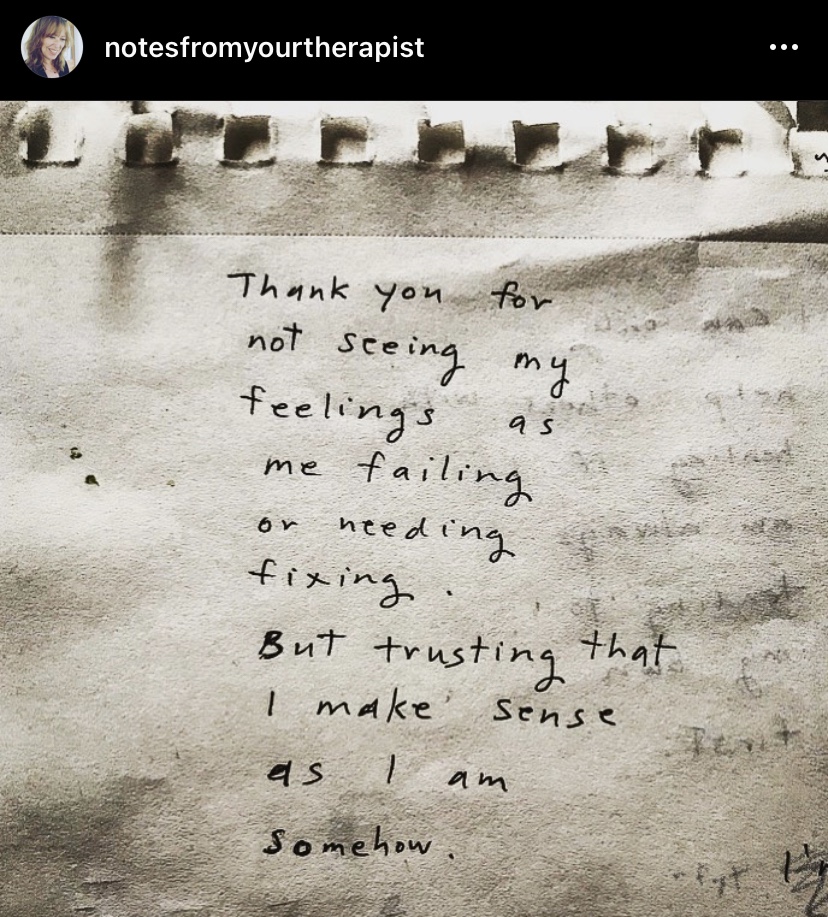 notesfromyourtherapist
Thank you for
not seeing my
feelings as
me failing
or needing
fixing.
But trusting that
I make sense
as I am
somehow.